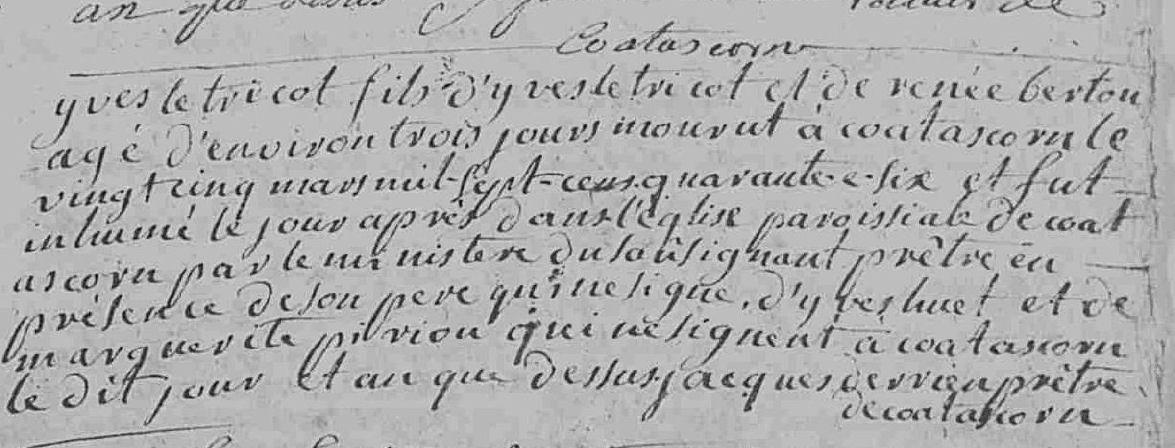 an que dessus
Coatascorn
yves le tricot fils d'yves le tricot et de renée bertou
agé d'environ trois jours mourut à coatascorn le
vingt cinq mars mil-sept-cens quarante-e-six et fut
inhumé le jour après dans l'église paroissiale de coat
ascorn par le ministere du sousignant prêtre en
présence de son pere qui ne signe, d'yves huet et de
marguerite piriou qui ne signent à coatascorn
le dit jour et an que dessus. jacques derrien prêtre
de coatascorn